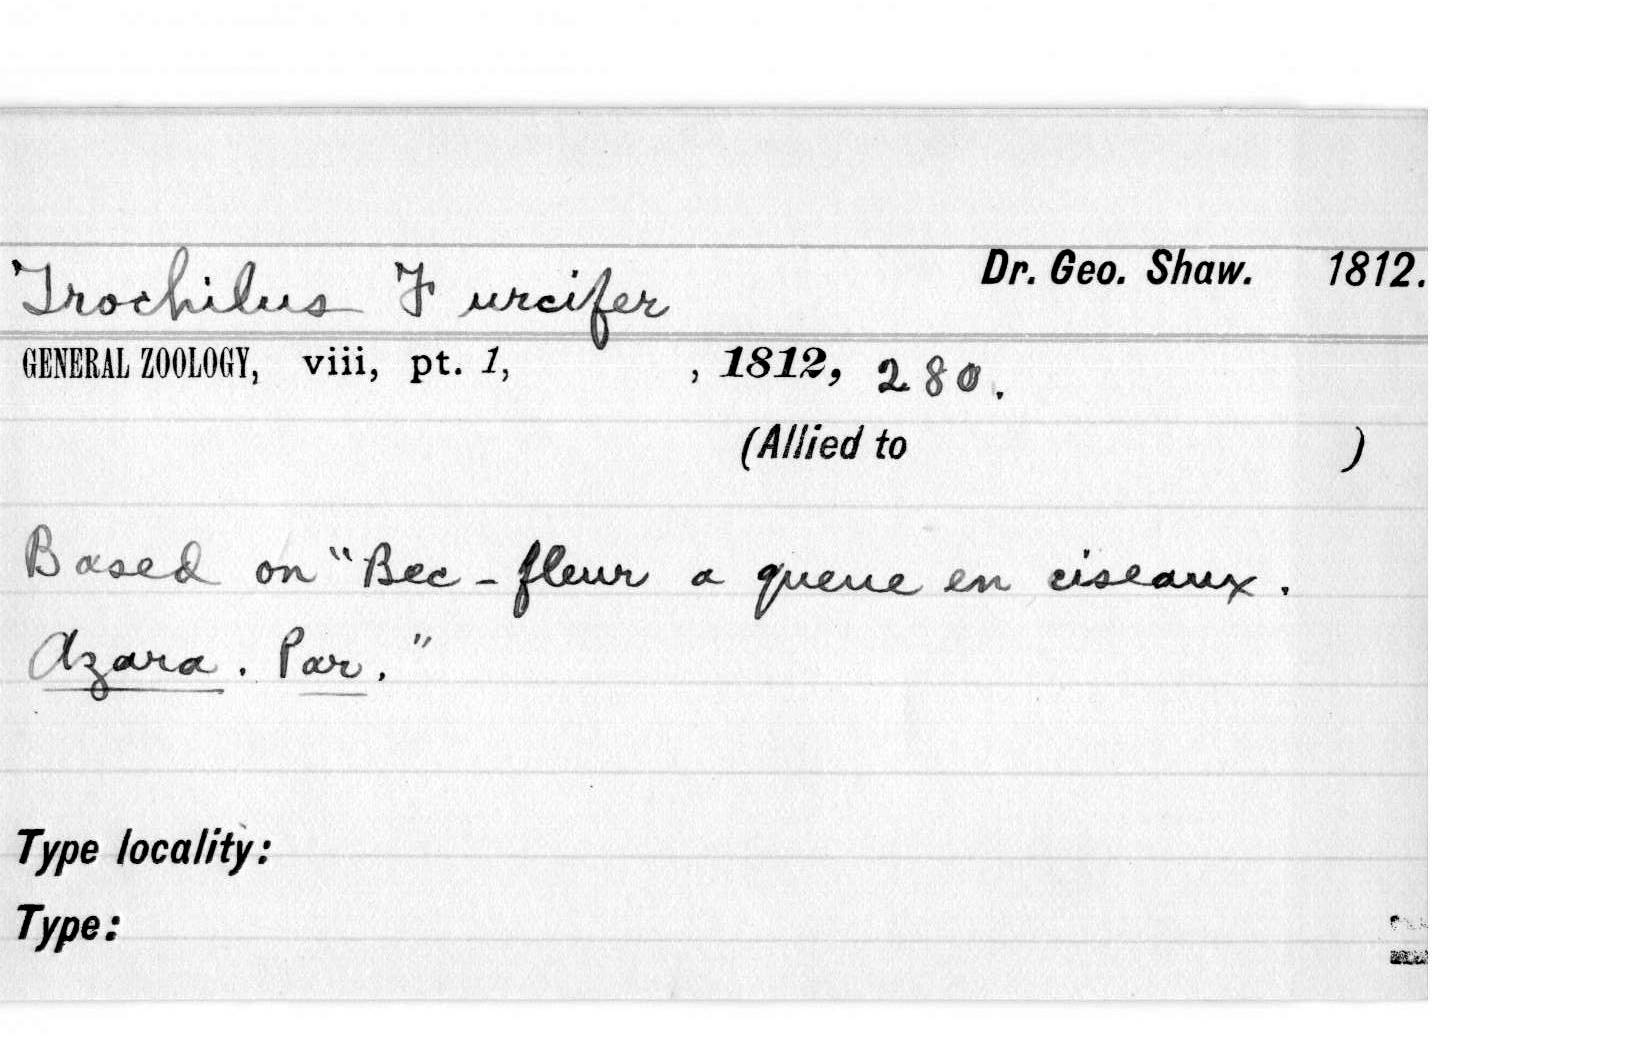 Trochilus Furcifer Dr. Geo. Shaw. 1812.
GENERAL ZOOLOGY, viii, pt. 1, , 1812, 280.
(Allied to )
Based on "Bec-fleur a queue en ciseaux.
Azara. Par."
Type locality:
Type: